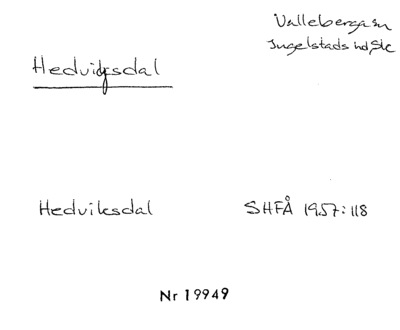 Valleberga sn
Ingelstads hd, Sk
Hedvigsdal
Hedviksdal SHFÅ 1957:118
Nr 19949